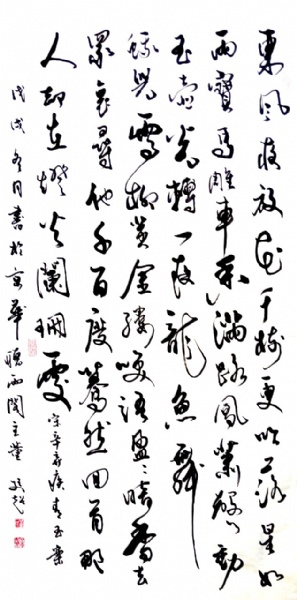 東風夜放花千樹更吹落星如
雨寶馬雕車香滿路鳳簫聲動
玉壺光轉一夜龍魚舞
蛾兒雪柳黃金縷笑語盈〻暗香去
眾裏尋他千百度驀然回首那
人卻在燈火闌珊處 宋辛棄疾青玉案
戊戌冬月書於京華聽雨閣主董